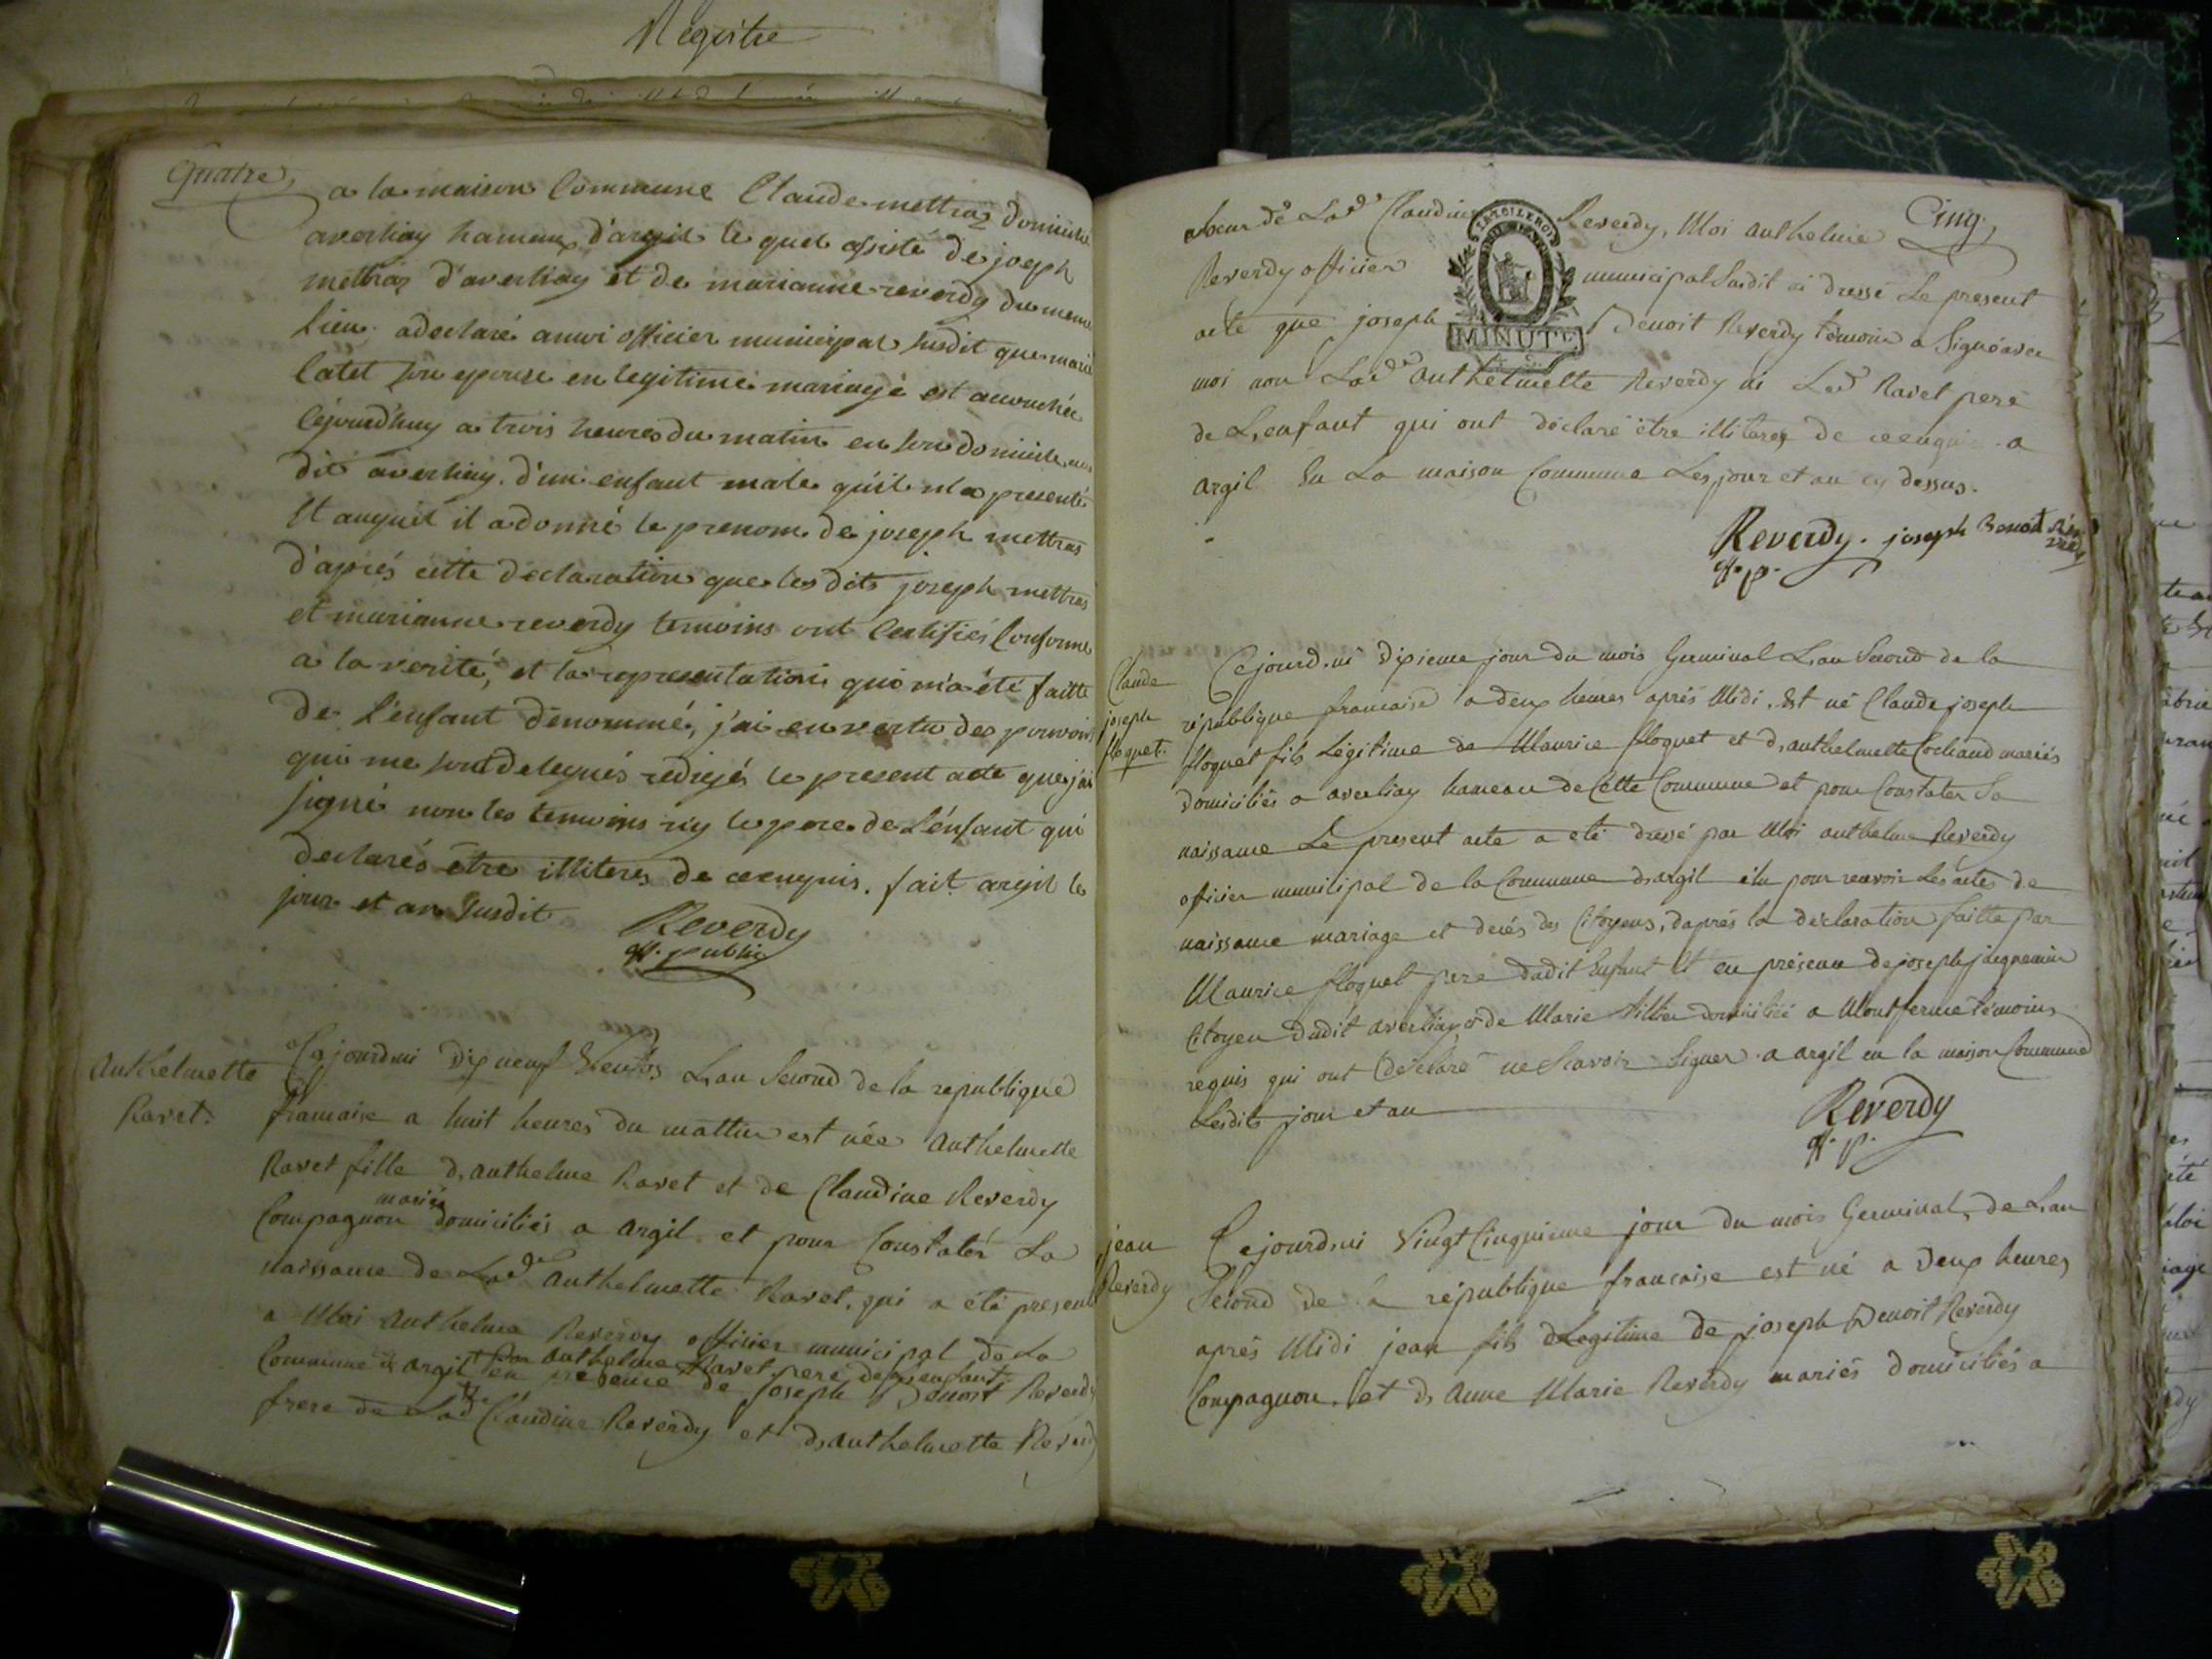 Registre
Quatre
a la maison Commune Claude mettraz domicilié
averliay hameau d'argil le quel assisté de joseph
mettraz d'averliay et de marianne reverdy du meme
lieu a declaré amoi officier municipal susdit que marie
latet son epouse en legitime mariage est acouchée
cejourd'huy a trois heures du matin en son domicile au
dit averliay d'un enfant male quil m'a presenté
Et auquel il adonné le prenom de joseph mettras
d'aprés cette declaration que les dits joseph mettras
et marianne reverdy temoins ont Certifiés Conforme
a la verité, et la representation qui m'a été faitte
de l'enfant dénommé, j'ai en vertu des pouvoirs
qui me sont delegués redigés le present acte que j'ai
signé non les temoins n'y le pere de l'énfant qui
declarés être illiteres de ce enquis. fait argil le
jour et an susdit
Reverdy
off. public
Anthelmette
Ravet.
Cejourd,ui Dix neuf Ventos L,an Second de la republique
francaise a huit heures du mattin est née Anthelmette
Ravet fille d, anthelme Ravet et de Claudine Reverdy
Compagnon mariés domiciliés a argil et pour Constater La
naissance de Lade anthelmette Ravet, qui a été presenté
a Moi Anthelme Reverdy officier municipal de La
Commune d argil par anthelme Ravet pere de L,enfant
en presence de Joseph Benoit Reverdy
frere de Lade Claudine Reverdy et d, anthelmette Reverdy
Cinq
soeur de Lade Claudine Reverdy, Moi anthelme
Reverdy officier municipal Susdit ai dressé Le present
acte que joseph Benoit Reverdy témoin a Signé avec
MINUTE
moi non Lade anthelmette Reverdy ni Led Ravet pere
de L,enfant qui ont déclaré être illiteres de ce enquis a
argil En La maison Commune Les jour et an cy dessus.
Reverdy. joseph Benoit Reverdy
off. p.
Claude
joseph
floquet.
Cejourd,ui Dixieme jour du mois Germinal L,an Second de la
république francaise a deux heures aprés Midi, Est né Claude joseph
floquet fils Légitime de Maurice floquet et d, anthelmette Cochand mariés
domiciliés a averliay hameau de Cette Commune et pour Constater Sa
naissance Le present acte a eté dressé par Moi anthelme Reverdy
officier municipal de la Commune d,argil élu pour recevoir Les actes de
naissance mariage et décés des Citoyens, daprés la déclaration faitte par
Maurice floquet pere dudit Enfant Et en présence de joseph jaquemin
Citoyen dudit averliay & de Marie domiciliée a Montferme témoins
requis qui ont Déclaré ne Scavoir Signer a argil en la maison Commune
Lesdits jour et an
Reverdy
off. p.
jean
Reverdy
Cejourd,ui Vingt Cinquieme jour du mois Germinal, de L,an
Second de la république francaise est né a Deux heures
aprés Midi jean fils Legitime de joseph Benoit Reverdy
Compagnon, et d, Anne Marie Reverdy mariés domiciliés a